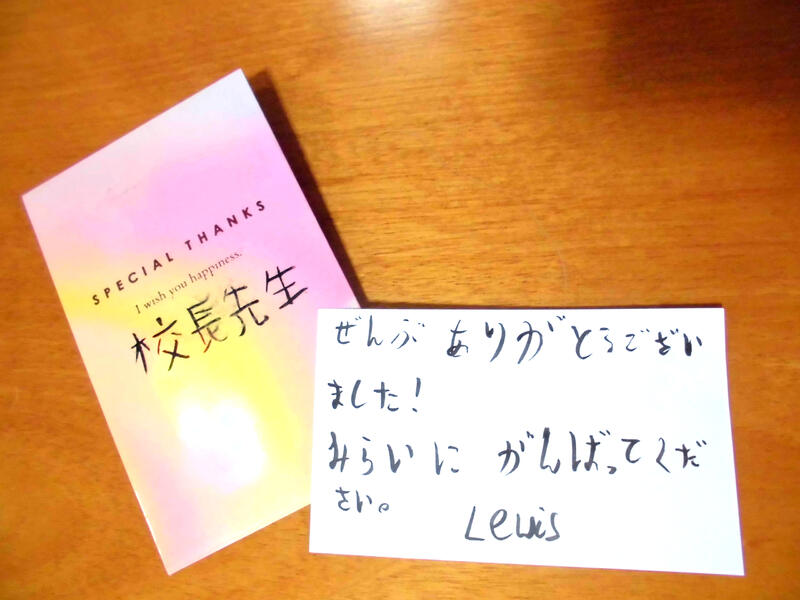 SPECIAL THANKS
I wish you happiness.
校長先生
ぜんぶ ありがとうござい
ました!
みらいに がんばってくだ
さい。
Lewis